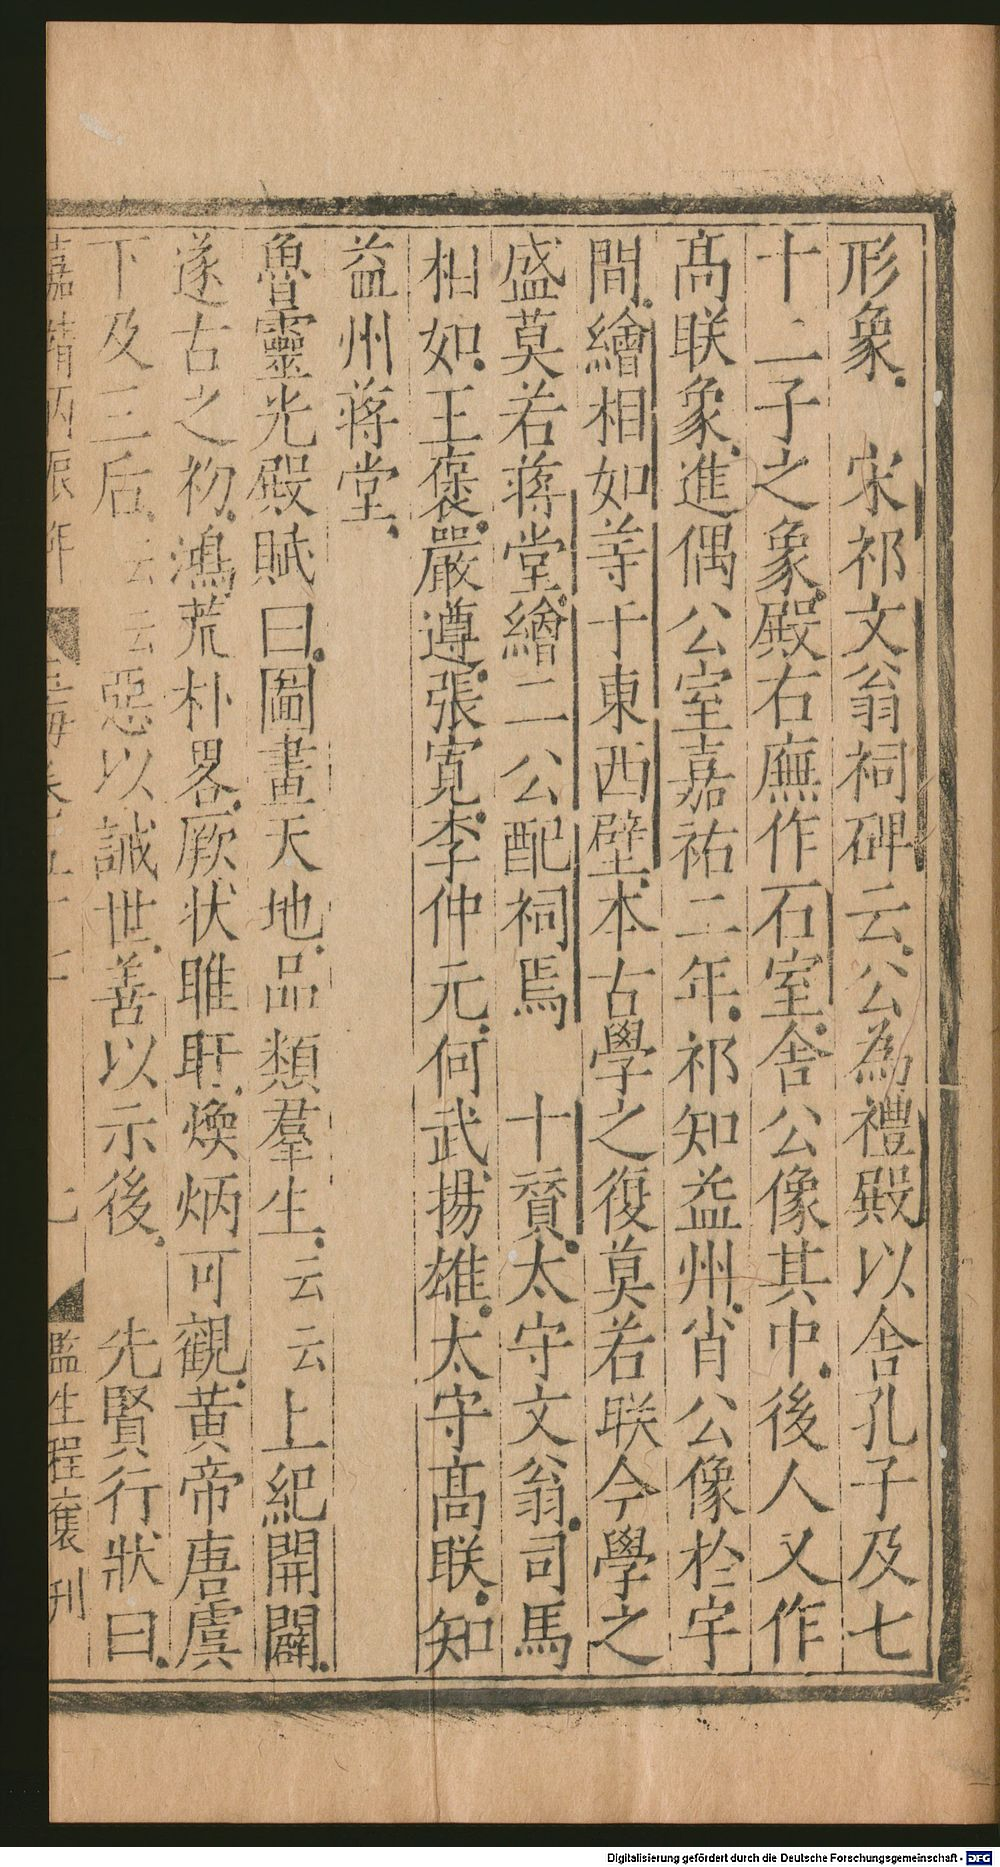 形象 宋祁文翁祠碑云公為禮殿以舍孔子及七
十二子之象殿右廡作石室舍公像其中後人又作
髙联象進偶公室嘉祐二年祁知益州肖公像於宇
間繪相如等于東西壁本古學之復莫若联今學之
盛莫若蒋堂繪二公配祠焉 十賛太守文翁司馬
相如王褒嚴遵張寛李仲元何武揚雄太守髙联知
益州蒋堂
魯靈光殿賦曰圖畫天地品類羣生云云上紀開闢
遂古之初鴻荒朴畧厥状睢盱煥炳可觀黄帝唐虞
下及三后云云惡以誡世善以示後 先賢行狀曰
嘉靖丙辰年 玉海卷五十七 七 監生程襄刊
Digitalisierung gefördert durch die Deutsche Forschungsgemeinschaft - DFG